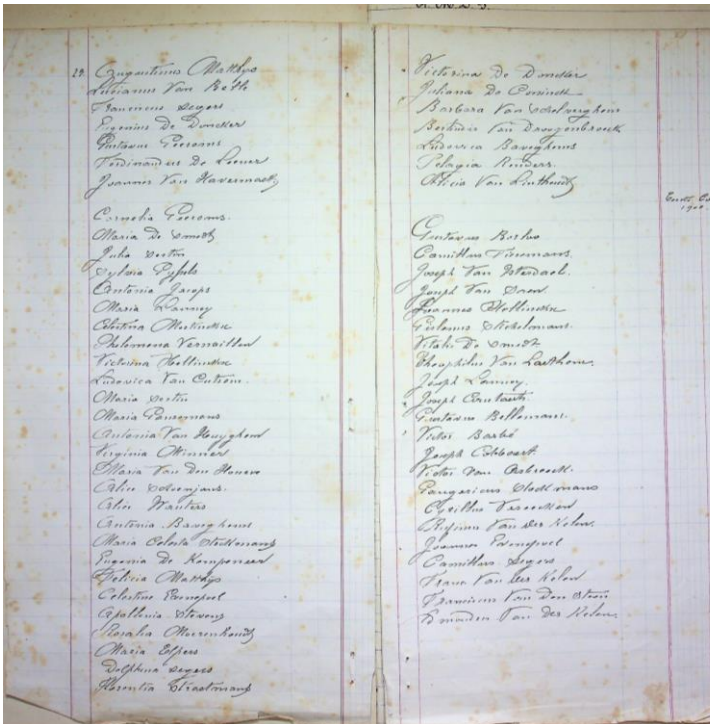 29. Augustinus Matthys
Lucianus Van Belle
Franciscus Segers
Eugenius De Doncker
Gustavus Peersons
Ferdinandus De Leener
Joannes Van Havermaet
Cornelia Peersons.
Maria De Smedt
Julia Sertin
Sylvia Pyfels
Antonia Jacops
Maria Lannoy
Celestina
Philomena Vernaillen
Victorina Hellinckx
Ludovica Van Cutsem.
Maria Sertin
Maria Pansemans
Antonia Van Huyghem
Virginia Minner
Maria Van Den Houwe
Celin
Celin Wauters
Antonia Baveghems
Maria Celesta Stockmans
Eugenia De Kempeneer
Felicia Matthys
Celestine Evenepoel
Apollonia Stevens
Rosalia
Maria Elpers
Delphina Segers
Florentia Straetmans
Victorina De Doncker
Juliana De Coninck
Barbara Van Schelverghem
Bertudis Van Droogenbroeck
Ludovica Baveghems
Pelagia Reinders.
Van Linthoudt
Gustavus
Camillus Timmermans.
Joseph Van Isterdael.
Joseph Van
Joannes Hellinckx
Stekelmans.
Vitalis De Smedt
Theophilus Van Laethem.
Joseph Lannoy.
Joseph Constants
Gustavus Bellemans.
Victor Barbé
Joseph Cobbaert.
Victor Van Asbroeck.
Gaugericus Stockmans
Cyrillus Vereecken
Van der Kelen.
Joannes Evenepoel
Camillus Segers
Frans Van der Kelen
Franciscus Van Den Steen
Van der Kelen